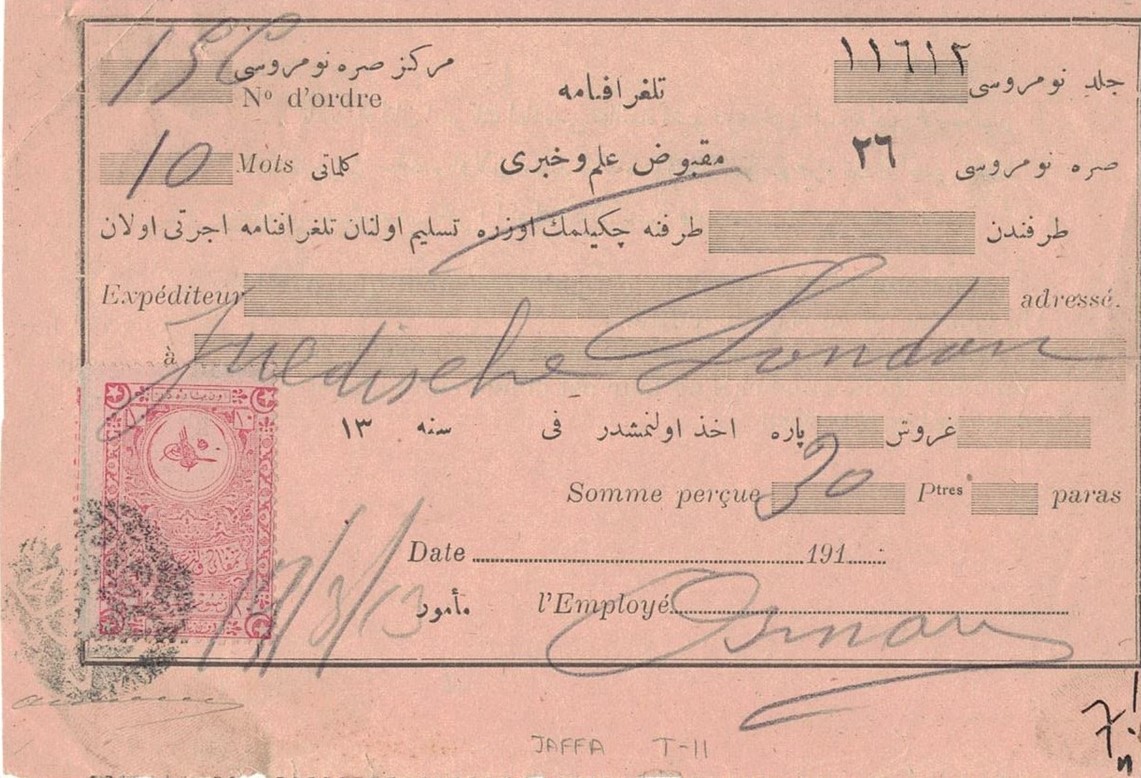 جلد نومروسی ١١٦١٢ تلغرافنامه مركز صره نومروسی
Nº d'ordre
صره نومروسی ٢٦ مقبوض علم و خبری كلماتی Mots 10
طرفندن طرفنه چكیلمك اوزره تسلیم اولنان تلغرافنامه اجرتی اولان
Expéditeur adressé.
à Juedische London
غروش پاره اخذ اولنمشدر فی سنه ١٣
Somme perçue 30 Ptres paras
Date 191
مأمور l'Employé Osman
JAFFA T-11